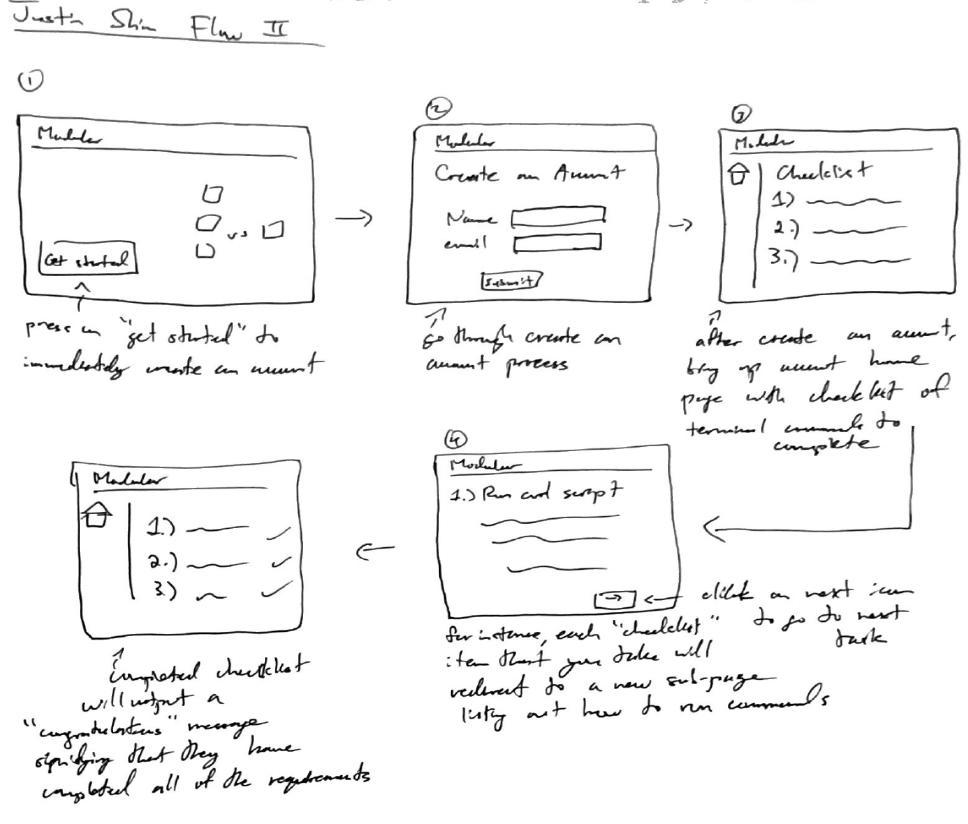 Justin Shin Flow II
①
Modular
vs
Get started
press on "get started" to
immediately create an account
②
Modular
Create an Account
Name
email
submit
go through create an
account process
③
Modular
Checklist
1)
2.)
3.)
after create an account,
bring up account home
page with checklist of
terminal commands to
complete
④
Modular
1.) Run cmd script
→
click on next icon
to go to next
task
for instance, each "checklist"
item that you take will
redirect to a new sub-page
listing out how to run commands
Modular
1.)
2.)
3.)
completed checklist
will output a
"congratulations" message
signifying that they have
completed all of the requirements